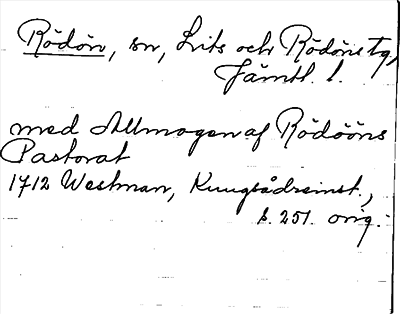 Rödön, sn, Lits och Rödöns tg,
Jämtl. l.
med Allmogen af Rödööns
Pastorat
1712 Westman, Kungsådreinst.,
s. 251. orig.